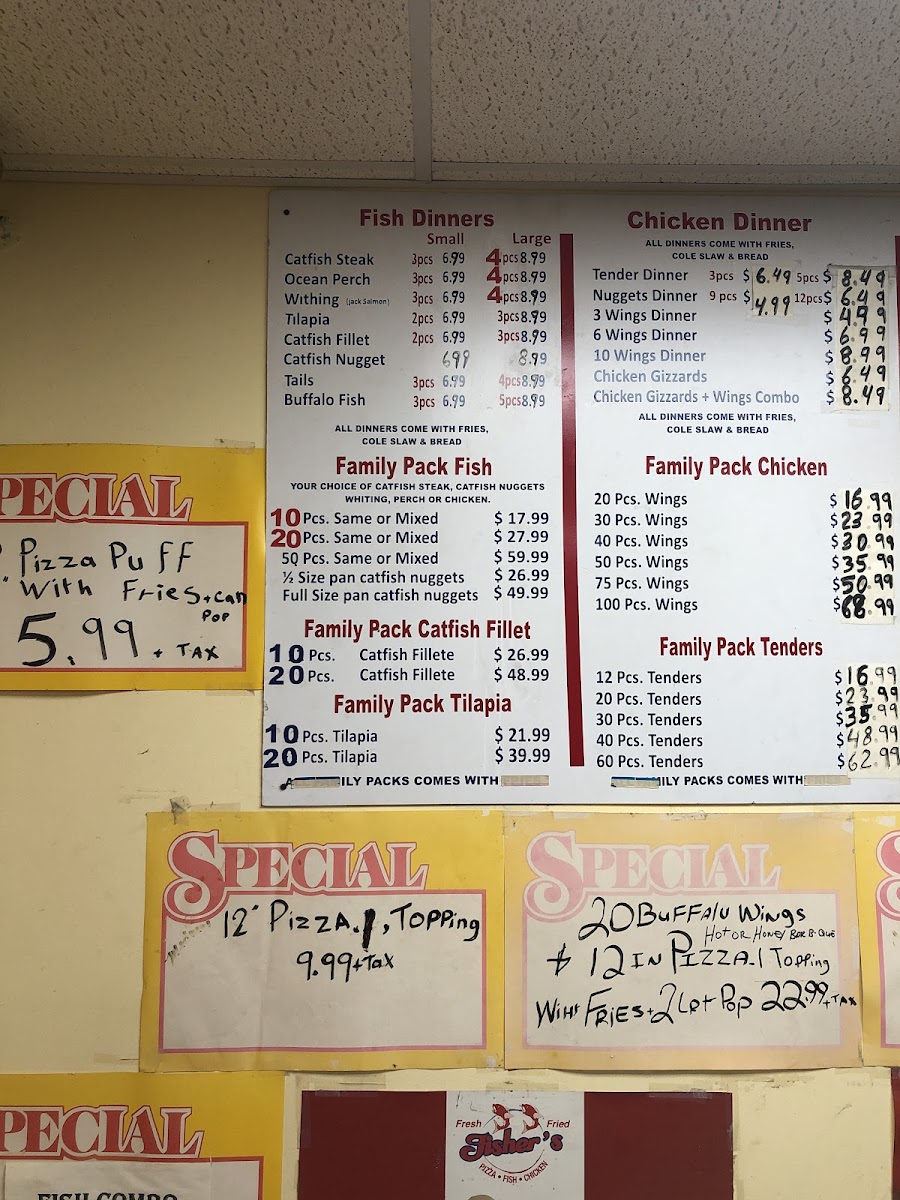 Fish Dinners
Small Large
Catfish Steak 3pcs 6.99 4pcs 8.99
Ocean Perch 3pcs 6.99 4pcs 8.99
Withing (Jack Salmon) 3pcs 6.99 4pcs 8.99
Tilapia 2pcs 6.99 3pcs 8.99
Catfish Fillet 2pcs 6.99 3pcs 8.99
Catfish Nugget 6.99 8.99
Tails 3pcs 6.99 4pcs 8.99
Buffalo Fish 3pcs 6.99 5pcs 8.99
ALL DINNERS COME WITH FRIES,
COLE SLAW & BREAD
Family Pack Fish
YOUR CHOICE OF CATFISH STEAK, CATFISH NUGGETS
WHITING, PERCH OR CHICKEN.
10 Pcs. Same or Mixed $ 17.99
20 Pcs. Same or Mixed $ 27.99
50 Pcs. Same or Mixed $ 59.99
½ Size pan catfish nuggets $ 26.99
Full Size pan catfish nuggets $ 49.99
Family Pack Catfish Fillet
10 Pcs. Catfish Fillete $ 26.99
20 Pcs. Catfish Fillete $ 48.99
Family Pack Tilapia
10 Pcs. Tilapia $ 21.99
20 Pcs. Tilapia $ 39.99
ILY PACKS COMES WITH
Chicken Dinner
ALL DINNERS COME WITH FRIES,
COLE SLAW & BREAD
Tender Dinner 3pcs $ 6.49 5pcs $ 8.49
Nuggets Dinner 9 pcs $ 4.99 12pcs $ 6.49
3 Wings Dinner $ 4.99
6 Wings Dinner $ 6.99
10 Wings Dinner $ 8.99
Chicken Gizzards $ 6.49
Chicken Gizzards + Wings Combo $ 8.49
ALL DINNERS COME WITH FRIES,
COLE SLAW & BREAD
Family Pack Chicken
20 Pcs. Wings $ 16.99
30 Pcs. Wings $ 23.99
40 Pcs. Wings $ 30.99
50 Pcs. Wings $ 35.99
75 Pcs. Wings $ 50.99
100 Pcs. Wings $ 68.99
Family Pack Tenders
12 Pcs. Tenders $ 16.99
20 Pcs. Tenders $ 23.99
30 Pcs. Tenders $ 35.99
40 Pcs. Tenders $ 48.99
60 Pcs. Tenders $ 62.99
ILY PACKS COMES WITH
PECIAL
Pizza Puff
With Fries + can
Pop
5.99 + TAX
SPECIAL
12" Pizza. 1, Topping
9.99 + Tax
SPECIAL
20 Buffalu Wings
Hot or Honey Bar B. Que
12 in Pizza - 1 Topping
Wiht Fries + 2 Let Pop 22.99 + TAX
PECIAL
FISH COMBO
Fresh Fried
Fisher's
PIZZA • FISH • CHICKEN